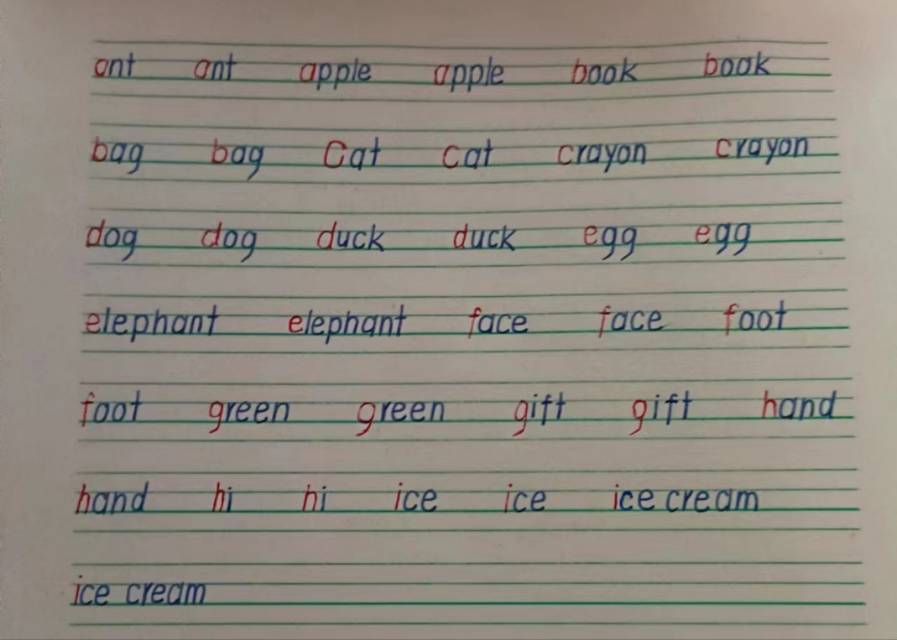 ant ant apple apple book book
bag bag Cat cat crayon crayon
dog dog duck duck egg egg
elephant elephant face face foot
foot green green gift gift hand
hand hi hi ice ice ice cream
ice cream